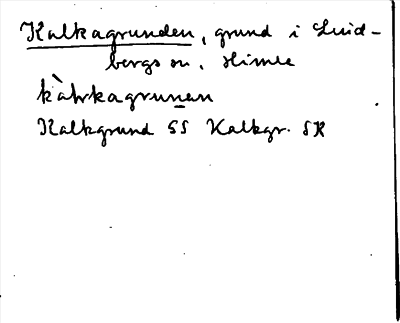 Kalkagrunden, grund i Luid-
bergs sn. Himle
kàhrkagrunan
Kalkgrund SS Kalkgr. SK